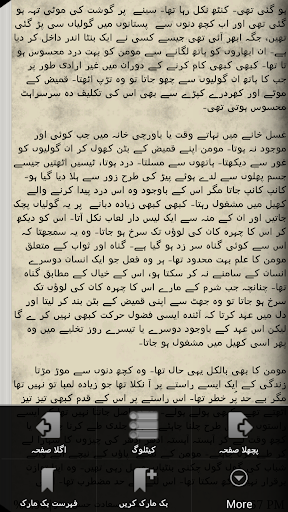 ہو گئی تھی۔ کنٹھ نکل رہا تھا۔ سینے پر گوشت کی موٹی تہہ ہو
گئی تھی اور اب کچھ دنوں سے پستانوں میں گولیاں سی پڑ گئی
تھیں، جگہ ابھر آئی تھی جیسے کسی نے ایک بنٹا اندر داخل کر دیا
ہے۔ ان ابھاروں کو ہاتھ لگانے سے مومن کو بہت درد محسوس ہو
تا تھا۔ کبھی کبھی کام کرنے کے دوران میں غیر ارادی طور پر
جب کا ہاتھ ان گولیوں سے چھو جاتا تو وہ تڑپ اٹھتا۔ قمیض کے
موٹے اور کھردرے کپڑے سے بھی اس کی تکلیف دہ سرسراہٹ
محسوس ہوتی تھی۔
غسل خانے میں نہاتے وقت یا باورچی خانہ میں جب کوئی اور
موجود نہ ہوتا۔ مومن اپنے قمیض کے بٹن کھول کر ان گولیوں کو
غور سے دیکھتا۔ ہاتھوں سے مسلتا۔ درد ہوتا، ٹیسیں اٹھتیں جیسے
جسم پھلوں سے لدے ہوئے پیڑ کی طرح زور سے ہلا دیا گیا ہو۔
کانپ کانپ جاتا مگر اس کے باوجود وہ اس درد پیدا کرنے والے
کھیل میں مشغول رہتا۔ کبھی کبھی زیادہ دبانے پر یہ گولیاں پچک
جاتیں اور ان کے منہ سے ایک لیس دار لعاب نکل آتا۔ اس کو دیکھ
کر اس کا چہرہ کان کی لوؤں تک سرخ ہو جاتا۔ وہ یہ سمجھتا کہ
اس سے کوئی گناہ سر زد ہو گیا ہے۔ گناہ اور ثواب کے متعلق
مومن کا علم بہت محدود تھا۔ ہر وہ فعل جو ایک انسان دوسرے
انسان کے سامنے نہ کر سکتا ہو، اس کے خیال کے مطابق گناہ
تھا۔ چنانچہ جب شرم کے مارے اس کا چہرہ کان کی لوؤں تک
سرخ ہو جاتا تو وہ جھٹ سے اپنی قمیض کے بٹن بند کر لیتا اور
دل میں عہد کرتا کہ آئندہ ایسی فضول حرکت کبھی نہیں کرے گا
لیکن اس عہد کے باوجود دوسرے یا تیسرے روز تخلیے میں وہ
پھر اسی کھیل میں مشغول ہو جاتا۔
مومن کا بھی بالکل یہی حال تھا۔ وہ کچھ دنوں سے موڑ مڑتا
زندگی کے ایک ایسے راستے پر آ نکلا تھا جو زیادہ لمبا تو نہیں تھا
مگر بے حد پر خطر تھا۔ اس راستے پر اس کے قدم کبھی تیز تیز
اگلا صفحہ
کیٹلوگ
پچھلا صفحہ
فہرست بک مارک
بک مارک کریں
More